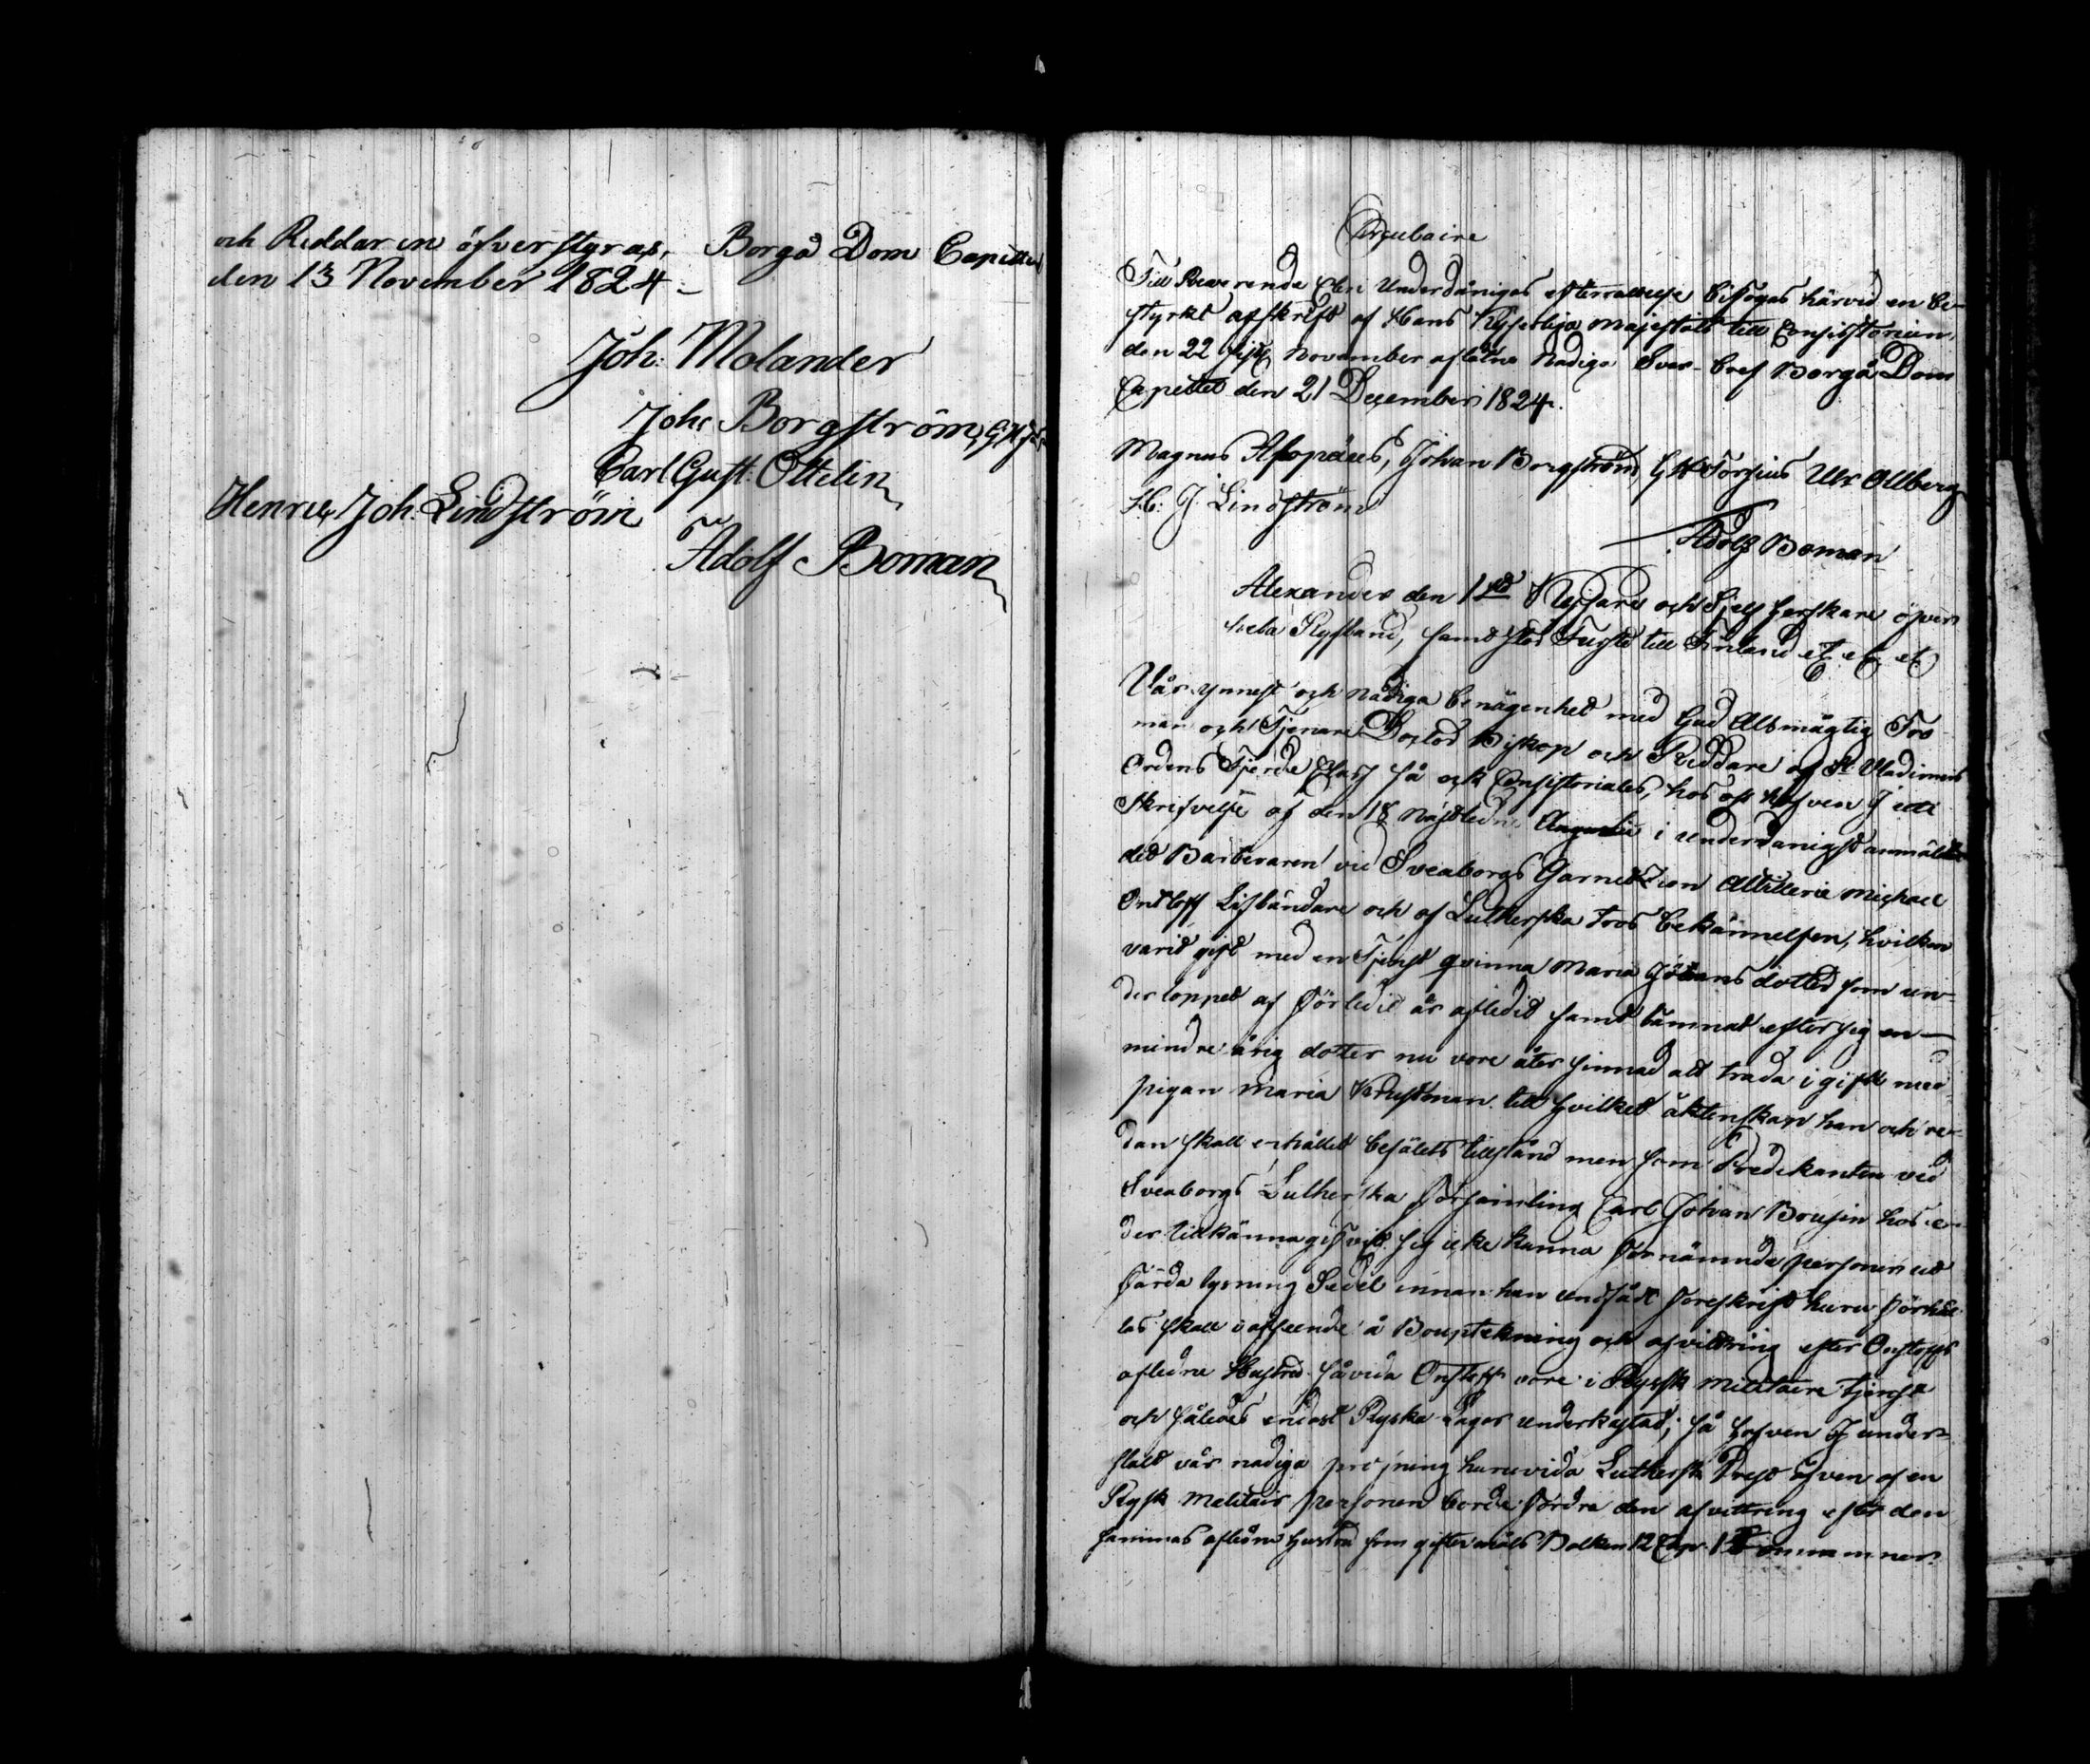 och Riddaren öfverstyras, Borgå Dom Capittel
den 13 November 1824 –
Joh: Molander
Joh: Borgström,
Carl Gust. Ottelin
Henric Joh. Lindström
Adolf Boman
Circulaire
Till Reverende Cleri Underdåniges efterrättelse bifogas härvid en be-
styrkt afskrift af Hans Kejserliga Majestäts till Consistorium
den 22 sistl November aflåtne Nådiga Svar-bref Borgå Dom
Capittel den 21 December 1824.
Magnus Alopæus, Johan Borgström, GH Forsius Ulr Ahlberg
H: J. Lindström
Adolf Boman
Alexander den 1sta Kejsare och Sjelfherskare öfver
hela Ryssland, samt Stor Furste till Finland etc etc etc
Vår ynnest och nådiga benägenhet med Gud Allsmägtig Tro
man och Tjenare Doctor Biskop och Riddare af St Vladimirs
Ordens Fjerde Class så ock Consistoriales, hos oss hafven J uti
skrifvelse af den 18 nästledne Augusti i underdånighet anmäldt
det Barberaren vid Sveaborgs Garnetzion Attillerie Michael
Ontloff Lifländare och af Lutherska tros bekännelsen, hvilken
varit gift med en Tjenst qvinna Maria Johans dotter som un-
der loppet af förledit år afledit samt lämnat efter sig en –
mindre årig dotter nu vore åter sinnad att träda i gifte med
pigan Maria Krustman till hvilket äktenskap han och re-
dan skall erhållit befälets tillstånd men som Predikanten vid
Sveaborgs Lutherska Församling Carl Johan Brusin hos e-
der tillkännagifvit sig icke kunna förnämnde personer ut
färda lysning Sedel innan han undfått föreskrift huru förhål
las skall i afseende å Bouptekning och afvittring efter Ontloffs
afledne Hustru såvida Ontloff vore i Rysk Militaire tjenst
och således endast Ryska Lagar underkastad; så hafven J under-
stält vår nådiga pröfning huruvida Luthersk Prest äfven af en
Rysk Militair personen borde fordra den afvittring efter den
sammas afledne hustru som giftermåls Balken 12 Cap. 1 § omnämner